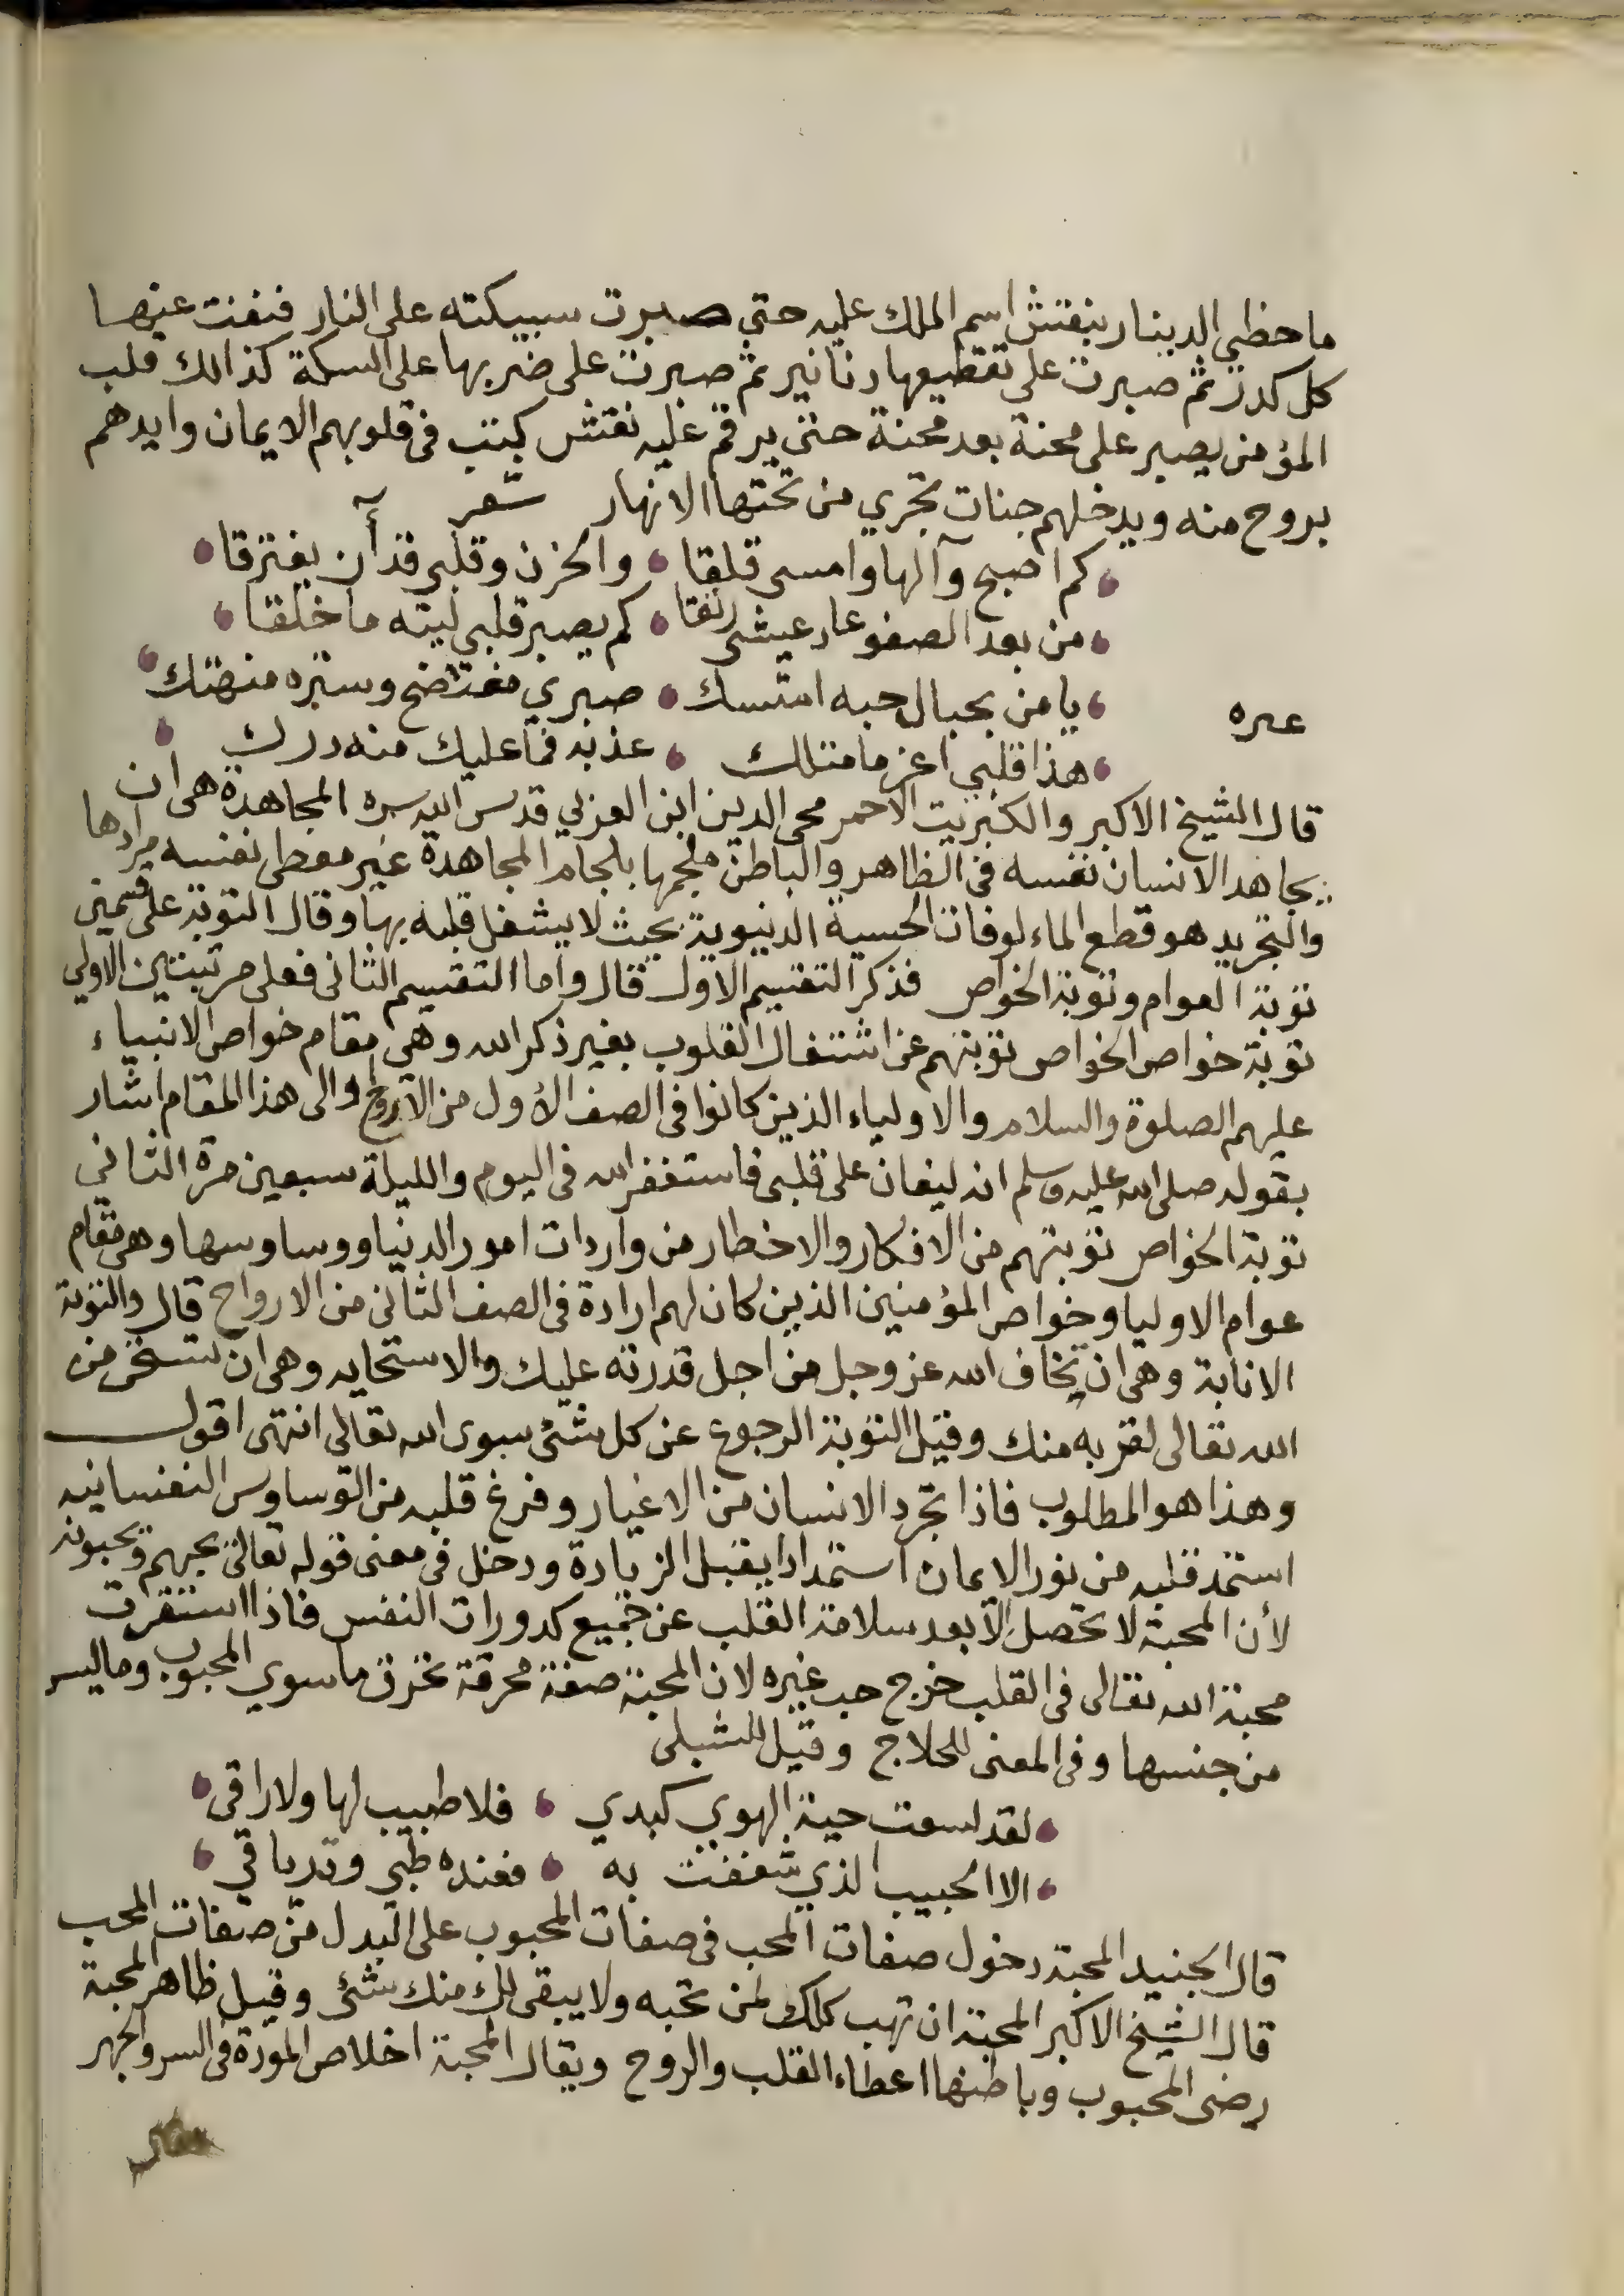 ما حظي الدينار بنقش اسم الملك عليه حتي صبرت سبيكته على النار فنفت عنها
كل كدر ثم صبرت على تقطيعها دنانير ثم صبرت على ضربها على السكة كذالك قلب
المؤمن يصبر على محنة بعد محنة حتى يرقم عليه نقش كتب فى قلوبهم الايمان وايدهم
بروح منه ويدخلهم جنات تجري من تحتها الانهار شعر
كم اصبح وآلها وامسى قلقا والحزن وقلبي قد آن يفترقا
من بعد الصفو عاد عيشى رنقا كم يصبر قلبى ليته ما خلقا
غيره يا من بحبال حبه امتسك صبري مفتضح وستره منهتك
هذا قلبي اعز ما متلك عذبه فما عليك منه درك
قال الشيخ الاكبر والكبريت الاحمر محى الدين ابن العربي قدس الله سره المجاهدة هى ان
يجاهد الانسان نفسه فى الظاهر والباطن ملجمها بلجام المجاهدة غير معطى نفسه مرادها
والتجريد هو قطع الماءلوفات الحسية الدنيوية بحيث لا يشغل قلبه بها وقال التوبة على قسمين
توبة العوام وتوبة الخواص فذكر التقسيم الاول قال واما التقسيم الثانى فعلى مرتبتين الاولي
توبة خواص الخواص توبتهم عن اشتغال القلوب بغير ذكر الله وهى مقام خواص الانبياء
عليهم الصلوة والسلام والاولياء الذين كانوا فى الصف الأول من الارواح والى هذا المقام اشار
بقوله صلى الله عليه وسلم انه ليغان على قلبى فاستغفر الله فى اليوم والليلة سبعين مرة الثاني
توبة الخواص توبتهم من الافكار والاخطار من واردات امور الدنيا ووساوسها وهى مقام
عوام الاوليا وخواص المؤمنين الذين كان لهم ارادة فى الصف الثانى من الارواح قال والتوبة
الانابة وهى ان تخاف الله عز وجل من اجل قدرته عليك والاستحايه وهى ان تستحى من
الله تعالى لقربه منك وقيل التوبة الرجوع عن كل شئ سوى الله تعالى انتهى اقول
وهذا هو المطلوب فاذا تجرد الانسان من الاغيار وفرغ قلبه من الوساوس النفسانيه
استمد قلبه من نور الايمان استمدادا يقبل الزيادة ودخل فى معنى قوله تعالى يحبهم ويحبونه
لأن المحبة لا تحصل الا بعد سلامة القلب عن جميع كدورات النفس فاذا استقرت
محبة الله تعالى فى القلب خرج حب غيره لان المحبة صفة محرقة تحرق ما سوي المحبوب وما ليس
من جنسها وفى المعنى للحلاج وقيل للشبلى
لقد لسعت حية الهوي كبدي فلا طبيب لها ولا راقى
الا الحبيب الذي شغفت به فعنده طبي وترياقي
قال الجنيد المحبة دخول صفات المحب فى صفات المحبوب على البدل من صفات المحب
قال الشيخ الاكبر المحبة ان تهب كلك لمن تحبه ولا يبقى لك منك شئ وقيل ظاهر المحبة
رضى المحبوب وباطنها اعطاء القلب والروح ويقال المحبة اخلاص المودة فى السر والجهر